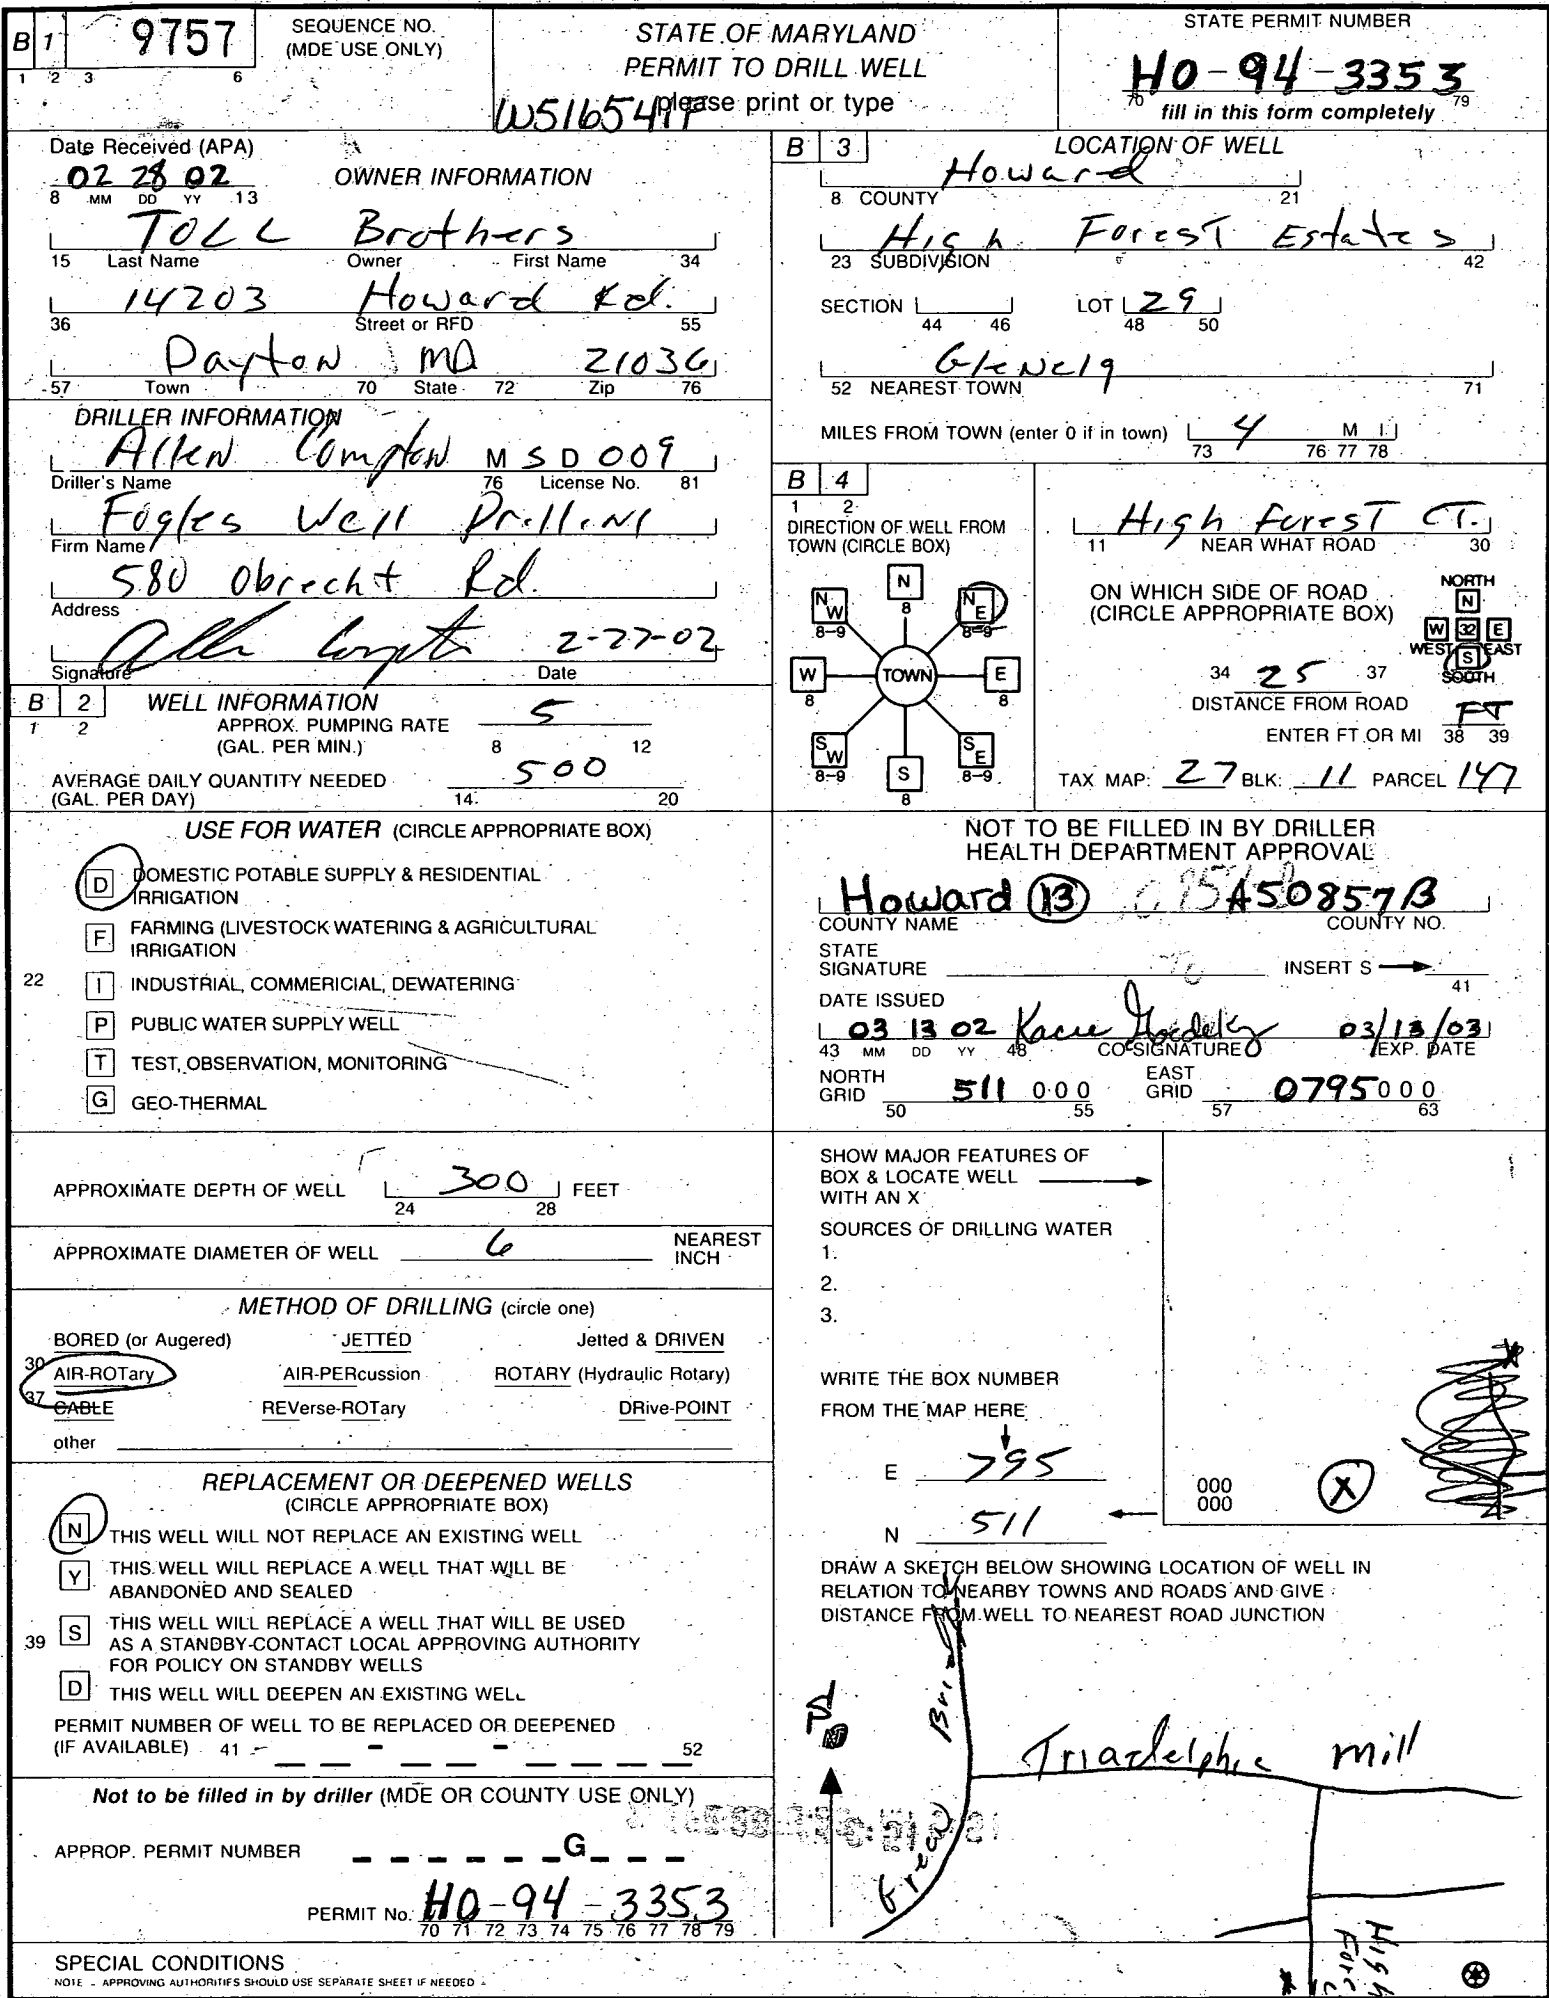 B 1 9757 SEQUENCE NO.
(MDE USE ONLY)
1 2 3 6
STATE OF MARYLAND
PERMIT TO DRILL WELL
please print or type
STATE PERMIT NUMBER
HO-94-3353
70 79
fill in this form completely
Date Received (APA)
02 28 02
8 MM DD YY 13
OWNER INFORMATION
TOLL Brothers
15 Last Name Owner First Name 34
14203 Howard Rd.
36 Street or RFD 55
Dayton MD 21036
57 Town 70 State 72 Zip 76
DRILLER INFORMATION
Allen Compton M S D 009
Driller's Name 76 License No. 81
Fogles Well Drilling
Firm Name
580 Obrecht Rd.
Address
Allen Compton 2-27-02
Signature Date
B 2 WELL INFORMATION
1 2
APPROX. PUMPING RATE 5
(GAL. PER MIN.) 8 12
AVERAGE DAILY QUANTITY NEEDED 500
(GAL. PER DAY) 14 20
USE FOR WATER (CIRCLE APPROPRIATE BOX)
D DOMESTIC POTABLE SUPPLY & RESIDENTIAL
IRRIGATION
F FARMING (LIVESTOCK WATERING & AGRICULTURAL
IRRIGATION
22 I INDUSTRIAL, COMMERICIAL, DEWATERING
P PUBLIC WATER SUPPLY WELL
T TEST, OBSERVATION, MONITORING
G GEO-THERMAL
APPROXIMATE DEPTH OF WELL 300 FEET
24 28
APPROXIMATE DIAMETER OF WELL 6 NEAREST
INCH
METHOD OF DRILLING (circle one)
BORED (or Augered) JETTED Jetted & DRIVEN
30 AIR-ROTary AIR-PERcussion ROTARY (Hydraulic Rotary)
37 CABLE REVerse-ROTary DRive-POINT
other
REPLACEMENT OR DEEPENED WELLS
(CIRCLE APPROPRIATE BOX)
N THIS WELL WILL NOT REPLACE AN EXISTING WELL
Y THIS WELL WILL REPLACE A WELL THAT WILL BE
ABANDONED AND SEALED
39 S THIS WELL WILL REPLACE A WELL THAT WILL BE USED
AS A STANDBY-CONTACT LOCAL APPROVING AUTHORITY
FOR POLICY ON STANDBY WELLS
D THIS WELL WILL DEEPEN AN EXISTING WELL
PERMIT NUMBER OF WELL TO BE REPLACED OR DEEPENED
(IF AVAILABLE) 41 - - - 52
Not to be filled in by driller (MDE OR COUNTY USE ONLY)
APPROP. PERMIT NUMBER G
PERMIT No. HO-94-3353
70 71 72 73 74 75 76 77 78 79
SPECIAL CONDITIONS
NOTE - APPROVING AUTHORITIES SHOULD USE SEPARATE SHEET IF NEEDED
B 3 LOCATION OF WELL
Howard
8 COUNTY 21
High Forest Estates
23 SUBDIVISION 42
SECTION LOT 29
44 46 48 50
Glenelg
52 NEAREST TOWN 71
MILES FROM TOWN (enter 0 if in town) 4 M I
73 76 77 78
B 4
1 2
DIRECTION OF WELL FROM
TOWN (CIRCLE BOX)
N
8
NW NE
8-9 8-9
W TOWN E
8 8
SW SE
8-9 8-9
S
8
High Forest CT.
11 NEAR WHAT ROAD 30
ON WHICH SIDE OF ROAD
(CIRCLE APPROPRIATE BOX)
NORTH
N
W 32 E
WEST EAST
S
SOUTH
34 25 37
DISTANCE FROM ROAD
ENTER FT OR MI FT
38 39
TAX MAP: 27 BLK: 11 PARCEL 147
NOT TO BE FILLED IN BY DRILLER
HEALTH DEPARTMENT APPROVAL
Howard 13 A50857B
COUNTY NAME COUNTY NO.
STATE
SIGNATURE INSERT S
41
DATE ISSUED
03 13 02 03/13/03
43 MM DD YY 48 CO-SIGNATURE EXP. DATE
NORTH
GRID 511 000
50 55
EAST
GRID 0795 000
57 63
SHOW MAJOR FEATURES OF
BOX & LOCATE WELL
WITH AN X
SOURCES OF DRILLING WATER
1.
2.
3.
WRITE THE BOX NUMBER
FROM THE MAP HERE
E 795
N 511
000
000
X
DRAW A SKETCH BELOW SHOWING LOCATION OF WELL IN
RELATION TO NEARBY TOWNS AND ROADS AND GIVE
DISTANCE FROM WELL TO NEAREST ROAD JUNCTION
N
Triadelphia Mill
High